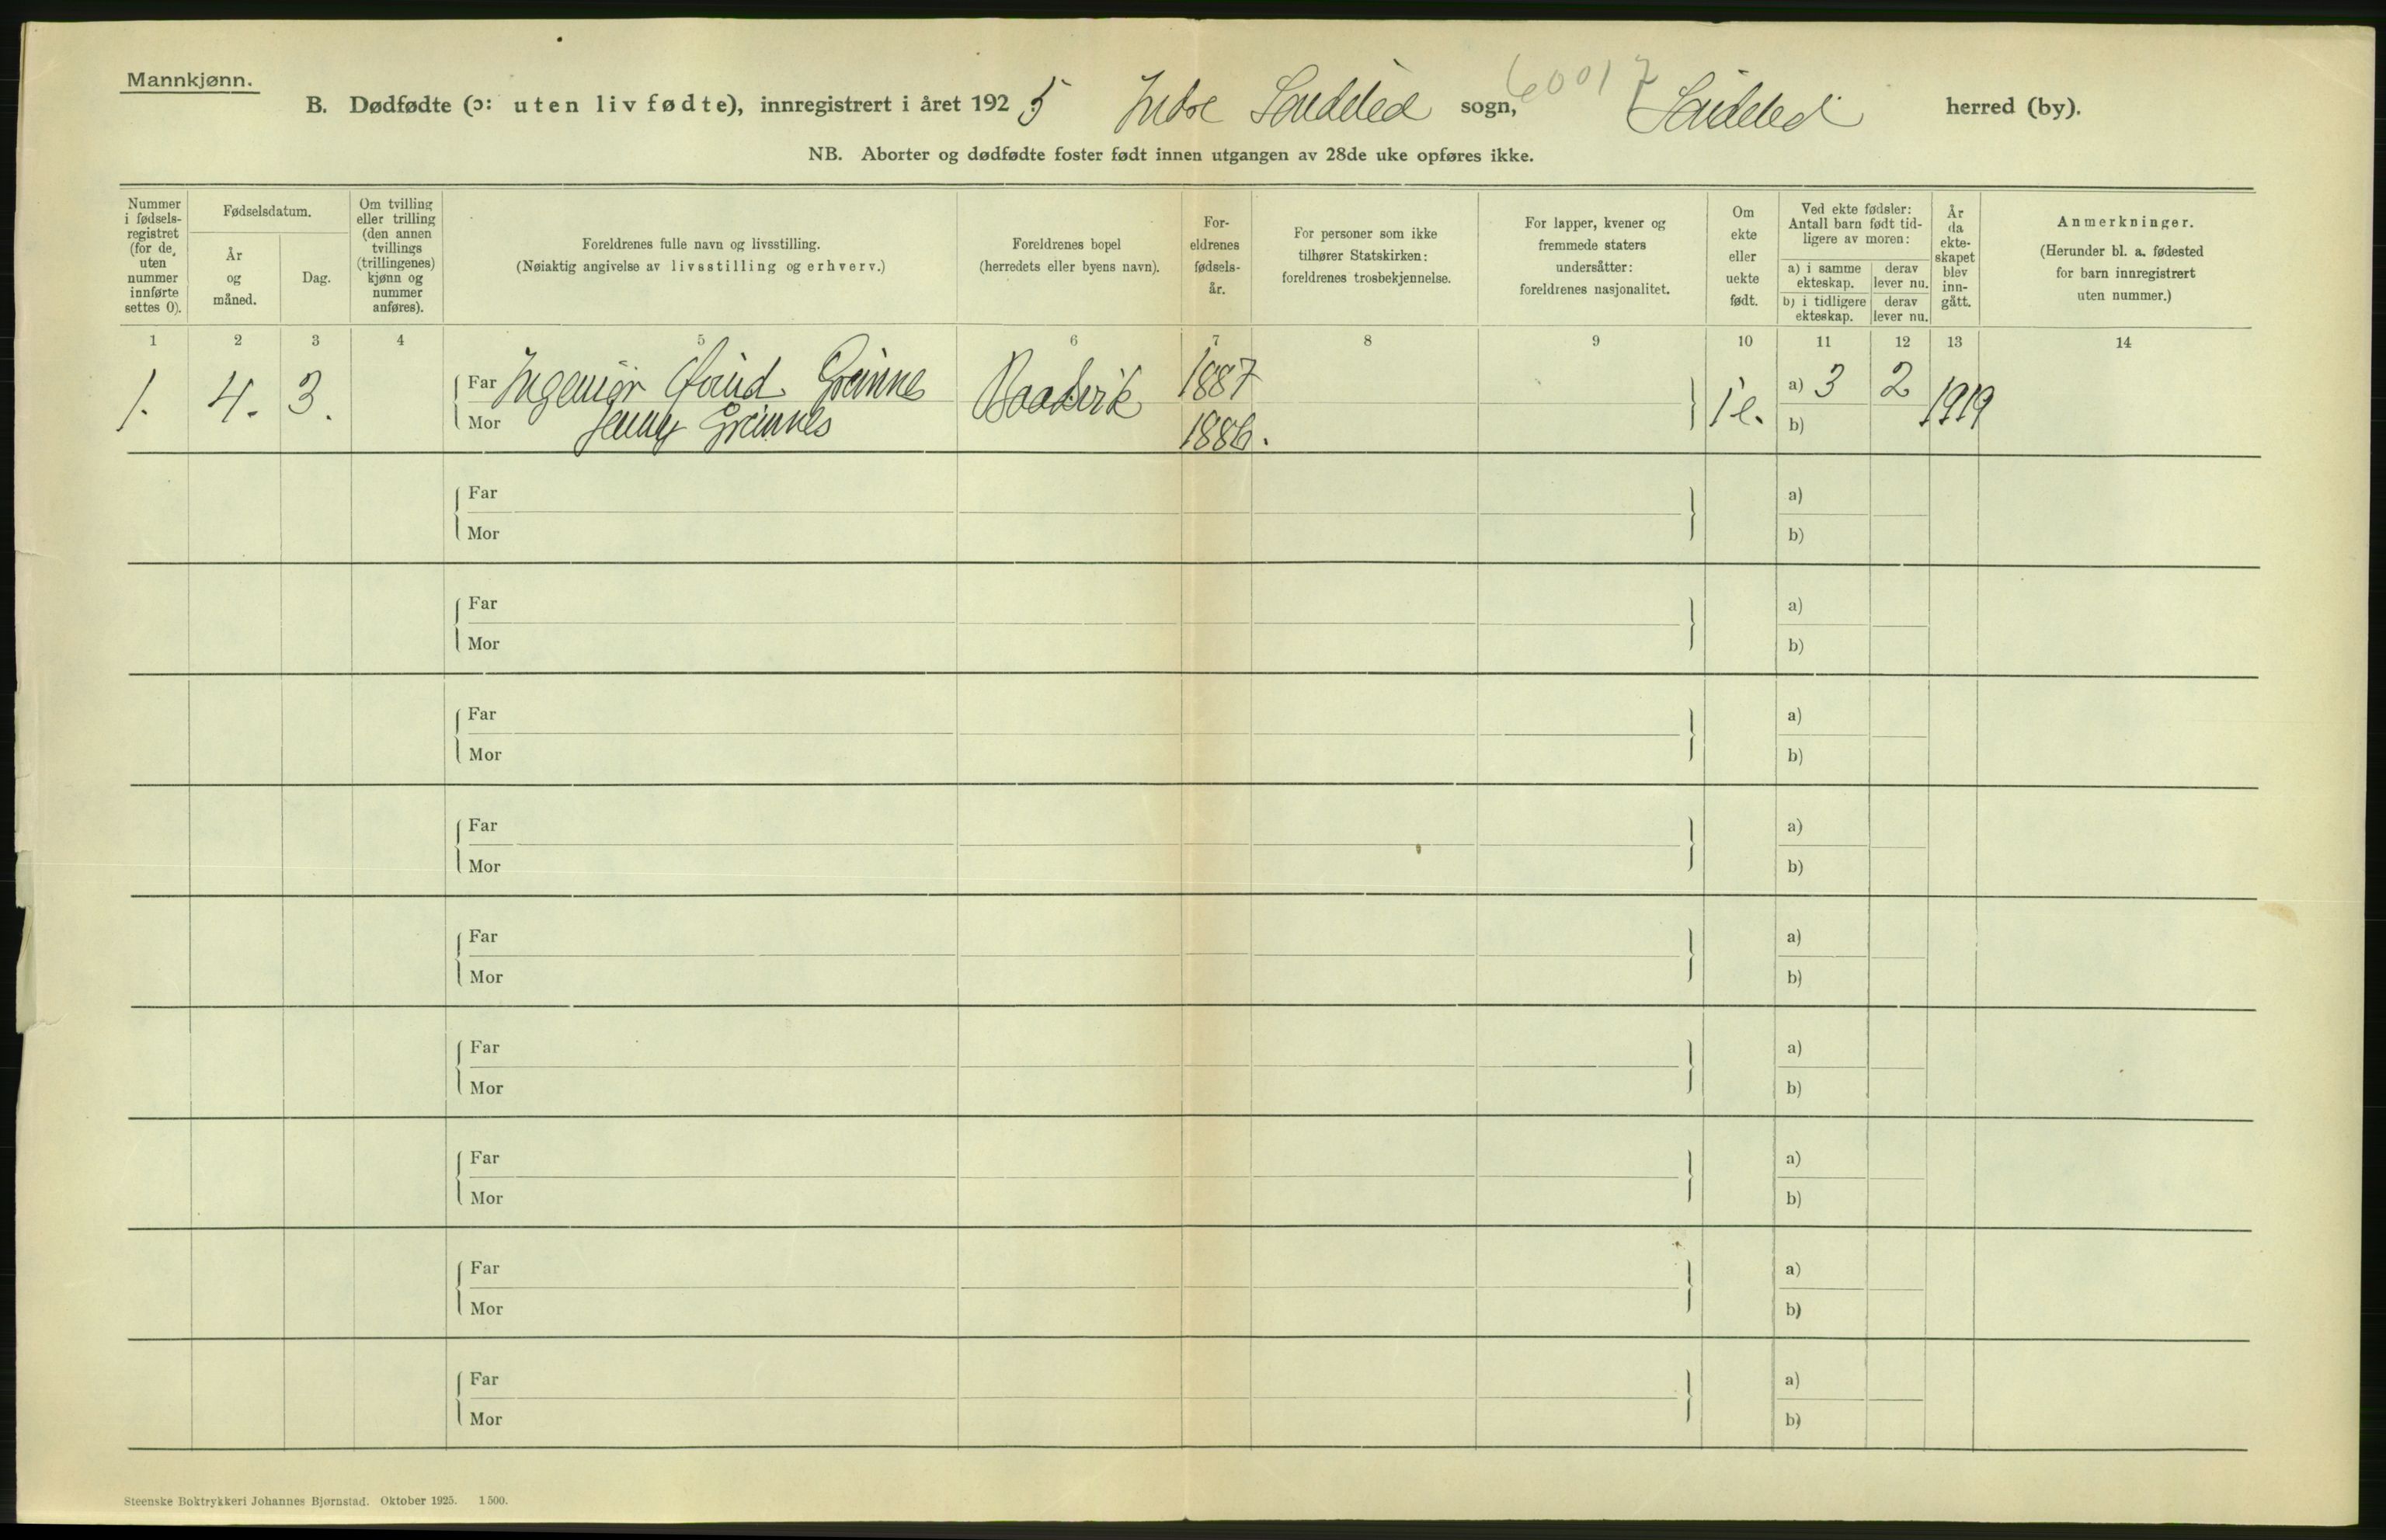 Mannkjønn.
60017
B. Dødfødte (ɔ: uten liv fødte), innregistrert i året 1925 Indre Søndeled sogn, Søndeled herred (by).
NB. Aborter og dødfødte foster født innen utgangen av 28de uke opføres ikke.
Nummer i fødsels- registret (for de uten nummer innførte settes 0).
Fødselsdatum.
År og måned.
Dag.
Om tvilling eller trilling (den annen tvillings (trillingenes) kjønn og nummer anføres).
Foreldrenes fulle navn og livsstilling.
(Nøiaktig angivelse av livsstilling og erhverv.)
Foreldrenes bopel
(herredets eller byens navn).
For- eldrenes fødsels- år.
For personer som ikke tilhører Statskirken: foreldrenes trosbekjennelse.
For lapper, kvener og fremmede staters undersåtter: foreldrenes nasjonalitet.
Om ekte eller uekte født.
Ved ekte fødsler:
Antall barn født tid- ligere av moren:
a) i samme ekteskap.
derav lever nu.
b) i tidligere ekteskap.
derav lever nu.
År da ekte- skapet blev inn- gått.
Anmerkninger.
(Herunder bl. a. fødested for barn innregistrert uten nummer.)
1 2 3 4 5 6 7 8 9 10 11 12 13 14
1. 4. 3. Far Ingeniør Grønnes 1887 a) 3 2 1919
Mor Jenny Grønnes 1886. b)
Far a)
Mor b)
Far a)
Mor b)
Far a)
Mor b)
Far a)
Mor b)
Far a)
Mor b)
Far a)
Mor b)
Far a)
Mor b)
Far a)
Mor b)
Far a)
Mor b)
Steenske Boktrykkeri Johannes Bjørnstad. Oktober 1925. 1500.